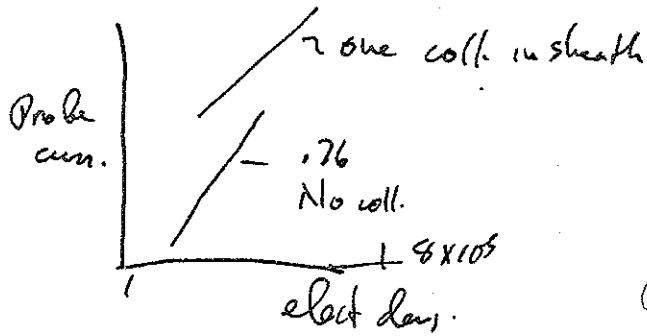 ~ one coll. in sheath
Probe
curr.
.76
No coll.
1
8 x 10⁵
elect dens.
(